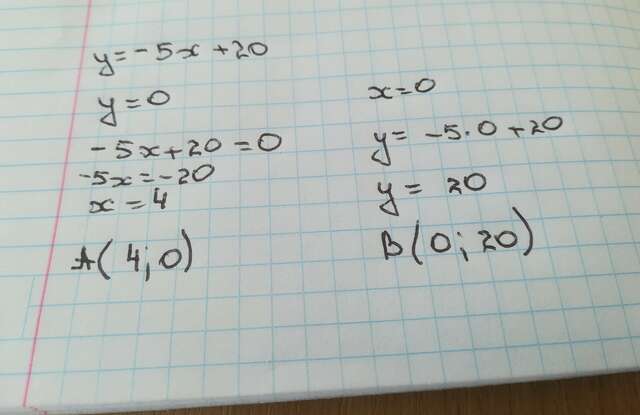 y=-5x+20
y=0
-5x+20=0
-5x=-20
x=4
A(4;0)
x=0
y=-5·0+20
y=20
B(0;20)